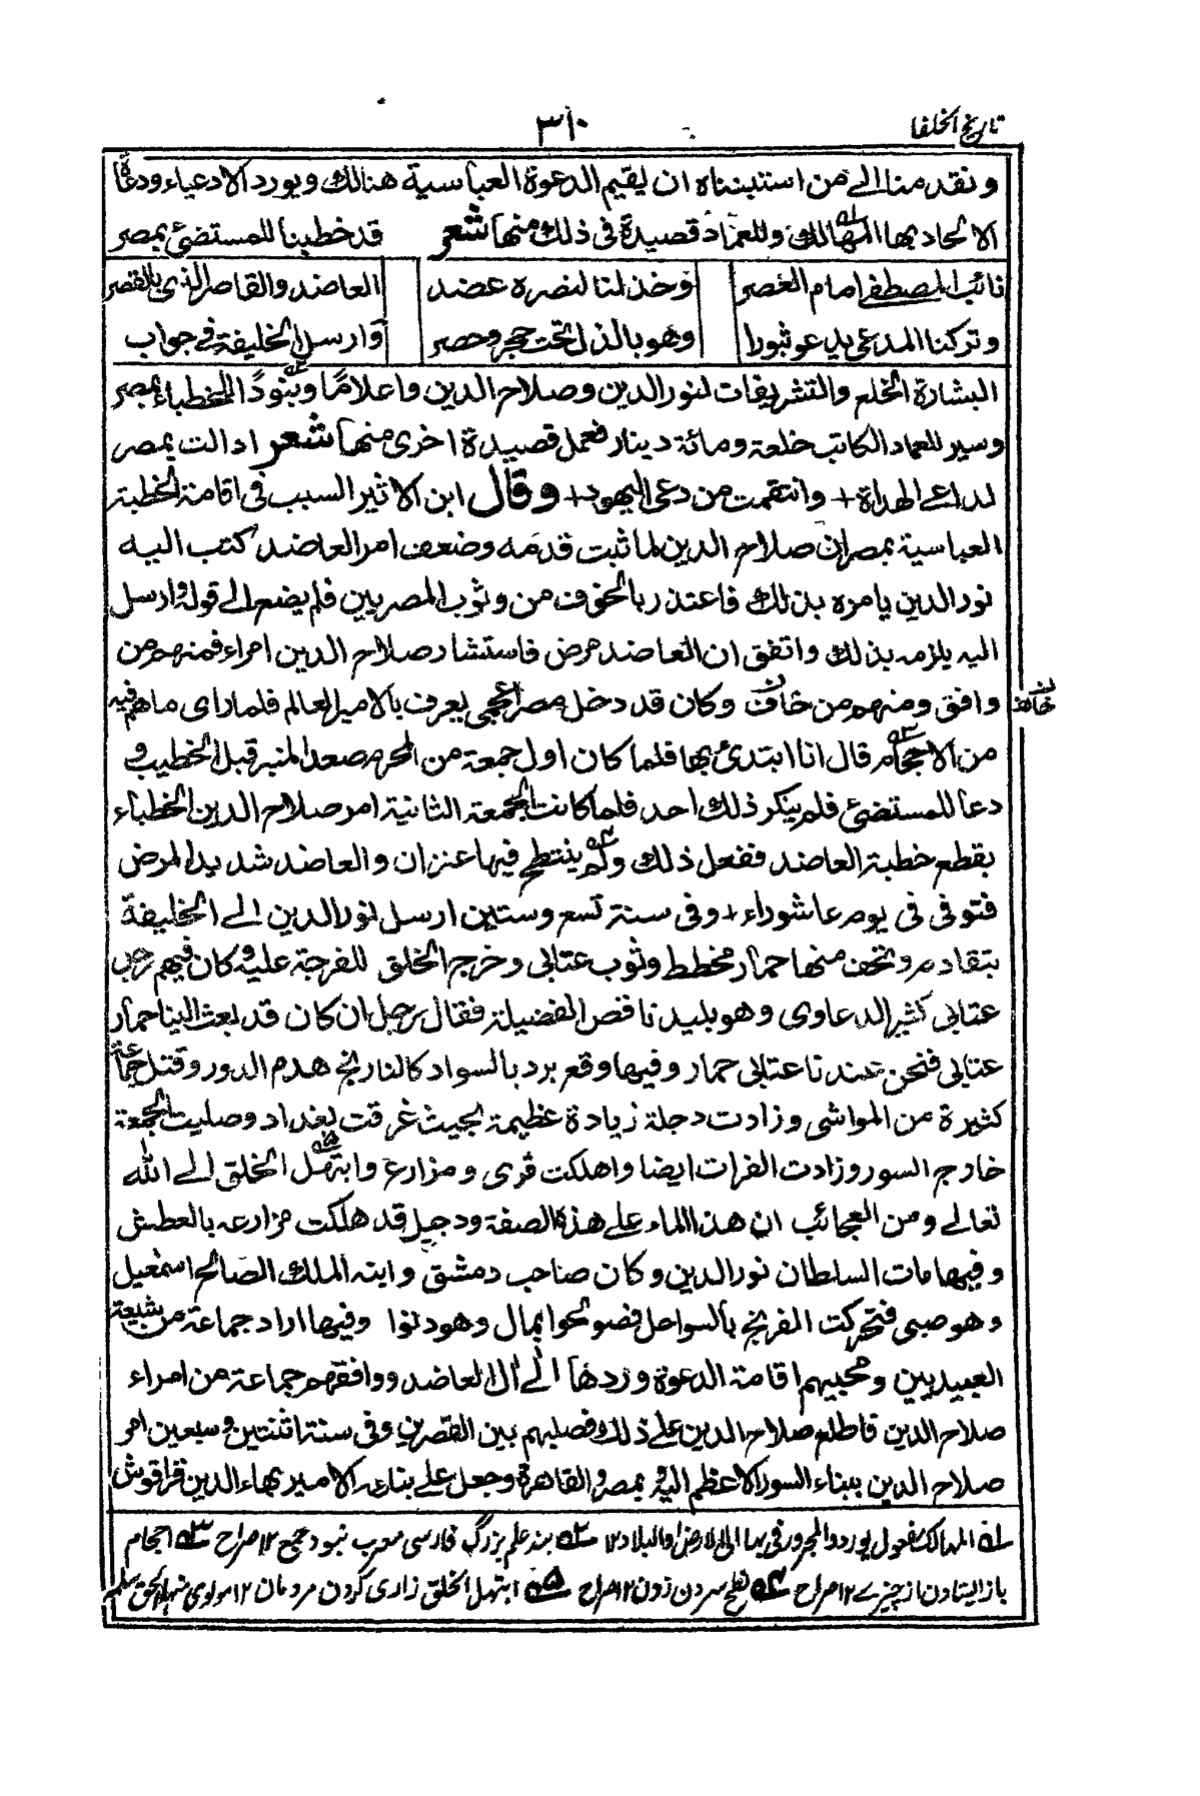 تاريخ الخلفا
٣١٠
ونقدمنا الى من استنبناه ان يقيم الدعوة العباسية هنالك ويورد الادعياء ودعاة
الالحاد بها المهالك وللعماد قصيدة فى ذلك منها شعر قد خطبنا للمستضئ بمصر
نائب المصطفے امام العصر وخذلنا لنصره عضد العاضد والقاصر الذى بالقصر
وتركنا المدعى يدعو ثبورا وهو بالذل تحت حجر وحصر وارسل الخليفة فى جواب
البشارة الخلع والتشريفات لنور الدين وصلاح الدين واعلامًا وبنودًا للخطباء بمصر
وسير للعماد الكاتب خلعة ومائة دينار فعمل قصيدة اخرى منها شعر ادالت بمصر
لداعى الهداة + وانتقمت من دعى اليهود + وقال ابن الاثير السبب فى اقامة الخطبة
العباسية بمصر ان صلاح الدين لما ثبت قدمه وضعف امر العاضد كتب اليه
نور الدين يامره بذلك فاعتذر بالخوف من وثوب المصريين فلم يضع الى قوله وارسل
اليه يلزمه بذلك واتفق ان العاضد مرض فاستشار صلاح الدين امراء فمنهم من
وافق ومنهم من خاف وكان قد دخل مصر اعجمى يعرف بالامير العالم فلما راى ما هم فيه
من الاحجام قال انا ابتدئ بها فلما كان اول جمعة من المحرم صعد المنبر قبل الخطيب و
دعا للمستضئ فلم ينكر ذلك احد فلما كانت الجمعة الثانية امر صلاح الدين الخطباء
بقطع خطبة العاضد ففعل ذلك ولم ينتطح فيها عنزان والعاضد شديد المرض
فتوفى فى يوم عاشوراء + وفى سنة تسع وستين ارسل نور الدين الى الخليفة
بتقادم وتحف منها حمار مخطط وثوب عتابى وخرج الخلق للفرجة عليه وكان فيهم رجل
عتابى كثير الدعاوى وهو بليد ناقص الفضيلة فقال رجل ان كان قد بعث الينا حمار
عتابى فنحن عندنا عتابى حمار وفيها وقع برد بالسواد كالنارنج هدم الدور وقتل جماعة
كثيرة من المواشى وزادت دجلة زيادة عظيمة بحيث غرقت بغداد وصليت الجمعة
خارج السور وزادت الفرات ايضا واهلكت قرى ومزارع وابتهل الخلق الى الله
تعالے ومن العجائب ان هذا الماء على هذه الصفة ودجيل قد هلكت مزارعه بالعطش
وفيها مات السلطان نور الدين وكان صاحب دمشق وابنه الملك الصالح اسمعيل
وهو صبى فتحركت الفرنج بالسواحل فصولحوا بمال وهودنوا وفيها اراد جماعة من شيعة
العبيديين ومحبيهم اقامة الدعوة وردها الى آل العاضد ووافقهم جماعة من امراء
صلاح الدين فاطلع صلاح الدين على ذلك فصلبهم بين القصرين وفى سنة اثنتين وسبعين امر
صلاح الدين ببناء السور الاعظم المحيط بمصر والقاهرة وجعل على بنائه الامير بهاء الدين قراقوش
له المهالك مفعول يورد والمجرور فى بها الى الارض او البلاد ١٢ بند علم بزرگ فارسى معرب بنود جمع ١٢ صراح احجام
باز ايستادن از چيزے ١٢ صراح نطح سردن زدن ١٢ صراح ابتهل الخلق زارى كردن مردمان ١٢ مولوى